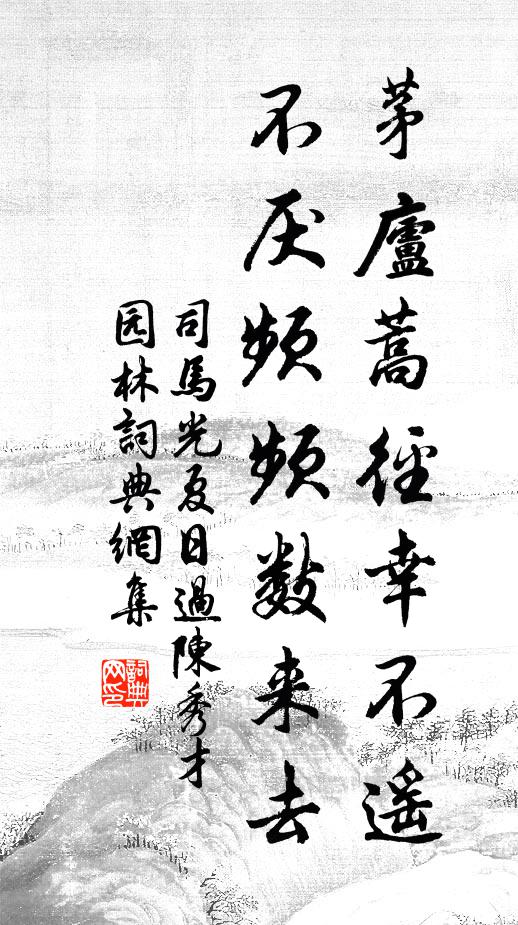 茅廬蒿徑幸不遥
不厌頻頻數来去
司馬光夏日過陳秀才
园林詞典網集
詞典网印